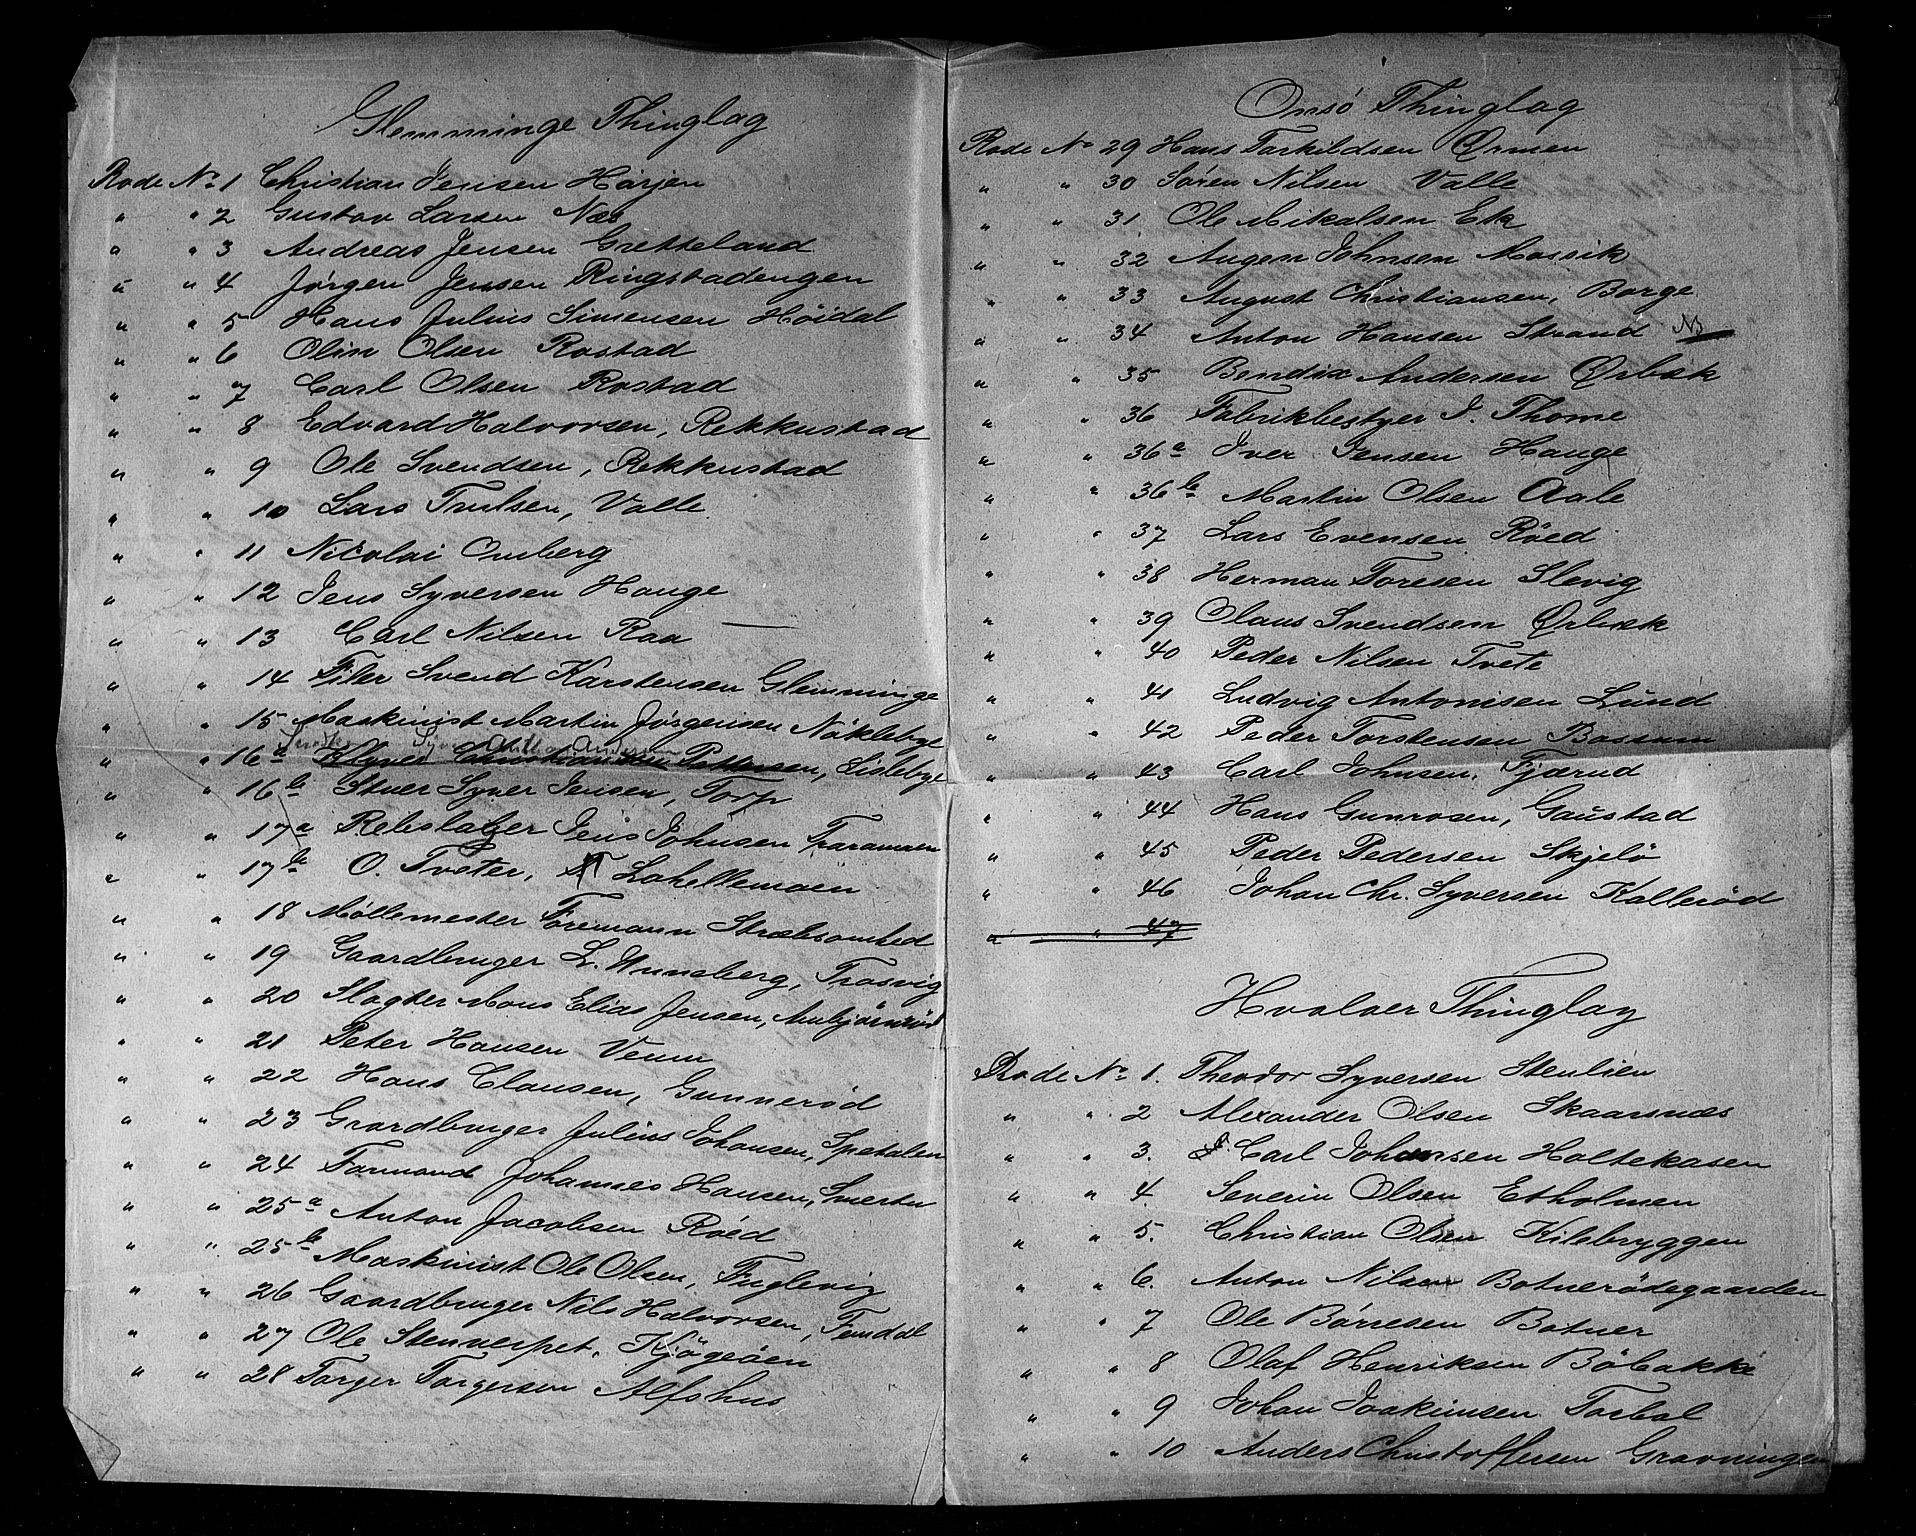 Glemminge Thinglag
Rode No 1 Christian Jensen Hørjen
" " 2 Gustav Larsen Næs
" " 3 Andreas Jensen Gretteland
" " 4 Jørgen Jensen Ringstadengen
" " 5 Hans Julius Simensen Høidal
" " 6 Olin Olsen Rostad
" " 7 Carl Olsen Rostad
" " 8 Edvard Halvorsen, Rekkustad
" " 9 Ole Svendsen, Rekkustad
" " 10 Lars Trulsen, Valle
" " 11 Nicolai Omberg
" " 12 Jens Syversen Hauge
" " 13 Carl Nilsen Raa
" " 14 Filer Svend Karstensen Glemminge
" " 15 Maskinist Martin Jørgensen Nökleby
Andersen
" " 16a Klyver Christian Pettersen, Lisleby
" " 16b Stuer Syver Jensen, Torp
" " 17a Rebslager Jens Johnsen Traramoen
" " 17b O. Tveter, Lahellemoen
" " 18 Møllemester Føremann Stræbsomhed
" " 19 Gaardbruger L. Wuneberg, Trosvig
" " 20 Slagter Mons Elias Jensen, Ambjörnröd
" " 21 Peter Hansen Veum
" " 22 Hans Clausen, Gunnerød
" " 23 Graardbruger Julius Johansen, Spetalen
" " 24 Formand Johannes Hansen, Smertu
" " 25a Anton Jacobsen Röed
" " 25b Maskinist Ole Olsen, Fuglevig
" " 26 Gaardbruger Nils Halvorsen, Femdal
" " 27 Ole Stennerpet. Kjøgeöen
" " 28 Torger Torgersen Alfshus
Onsö Thinglag
Rode No 29 Hans Torkildsen Ørmen
" " 30 Søren Nilsen Valle
" " 31. Ole Mikalsen Ek
" " 32 Augen Johnsen Mossik
" " 33 August Christiansen, Borge
" " 34 Anton Hansen Strand NB
" " 35 Bendix Andersen Ørbæk
" " 36 Fabrikbestyer J. Thome
" " 36a Iver Jensen Hauge
" " 36b Martin Olsen Aale
" " 37 Lars Evensen Röed
" " 38 Herman Toresen Slevig
" " 39 Olaus Svendsen Ørbæk
" " 40 Peder Nilsen Tvete
" " 41 Ludvig Antonisen Lund
" " 42 Peder Torstensen Bossum
" " 43 Carl Johnsen, Fjærud
" " 44 Hans Gunrosen, Gaustad
" " 45 Peder Pedersen Skjelö
" " 46 Johan Chr. Syversen Kallerød
" " 47
Hvaloer Thinglag
Rode No 1. Theodor Syversen Stenlien
" " 2 Alexander Olsen Skaarsnæs
" " 3. Carl Johansen Holtekasen
" " 4 Severin Olsen Etholmen
" " 5. Christian Olsen Kilebryggen
" " 6. Anton Nilsen Botnerødegaarden
" " 7 Ole Børresen Botner
" " 8 Olaf Henriksen Böbakke
" " 9 Johan Joakimsen Torbal
" " 10 Anders Christoffersen Gravningen